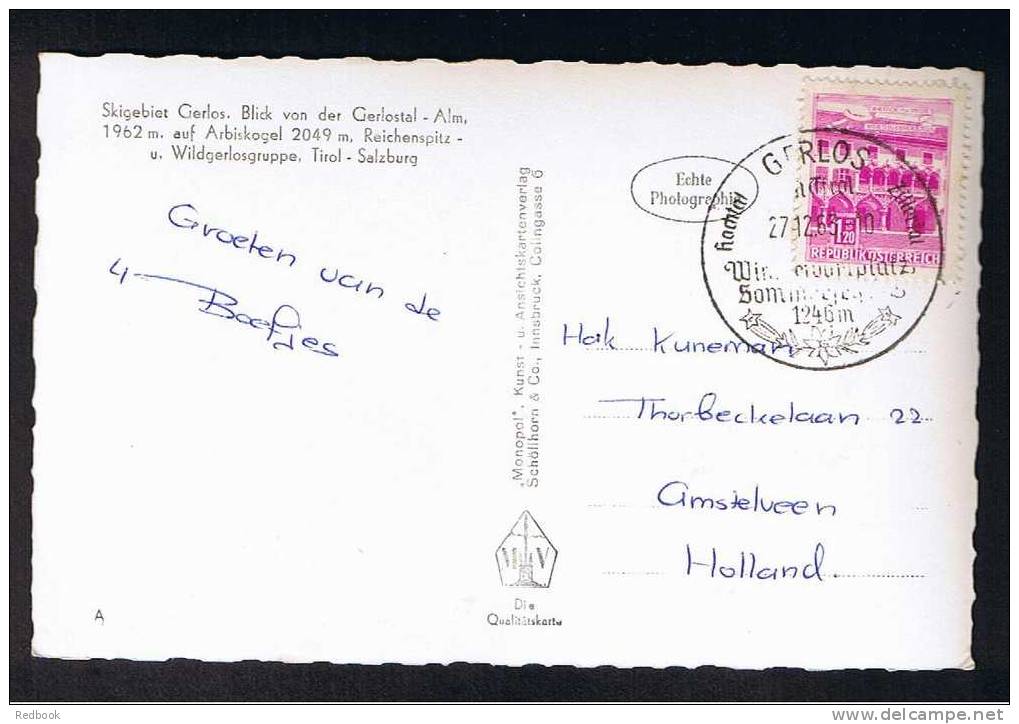 Skigebiet Gerlos. Blick von der Gerlostal - Alm,
1962 m. auf Arbiskogel 2049 m, Reichenspitz -
u. Wildgerlosgruppe, Tirol - Salzburg
Groeten van de
4 Boefjes
„Monopol", Kunst - u. Ansichtskartenverlag
Schöllhorn & Co., Innsbruck, Colingasse 6
Die
Qualitätskarte
A
Echte
Photographie
GERLOS
Tirol
Hochtal
Zillertal
27.12.63
1246 m
1.20
REPUBLIK ÖSTERREICH
Haik Kuneman
Thorbeckelaan 22
Amstelveen
Holland.
Redbook
www.delcampe.net